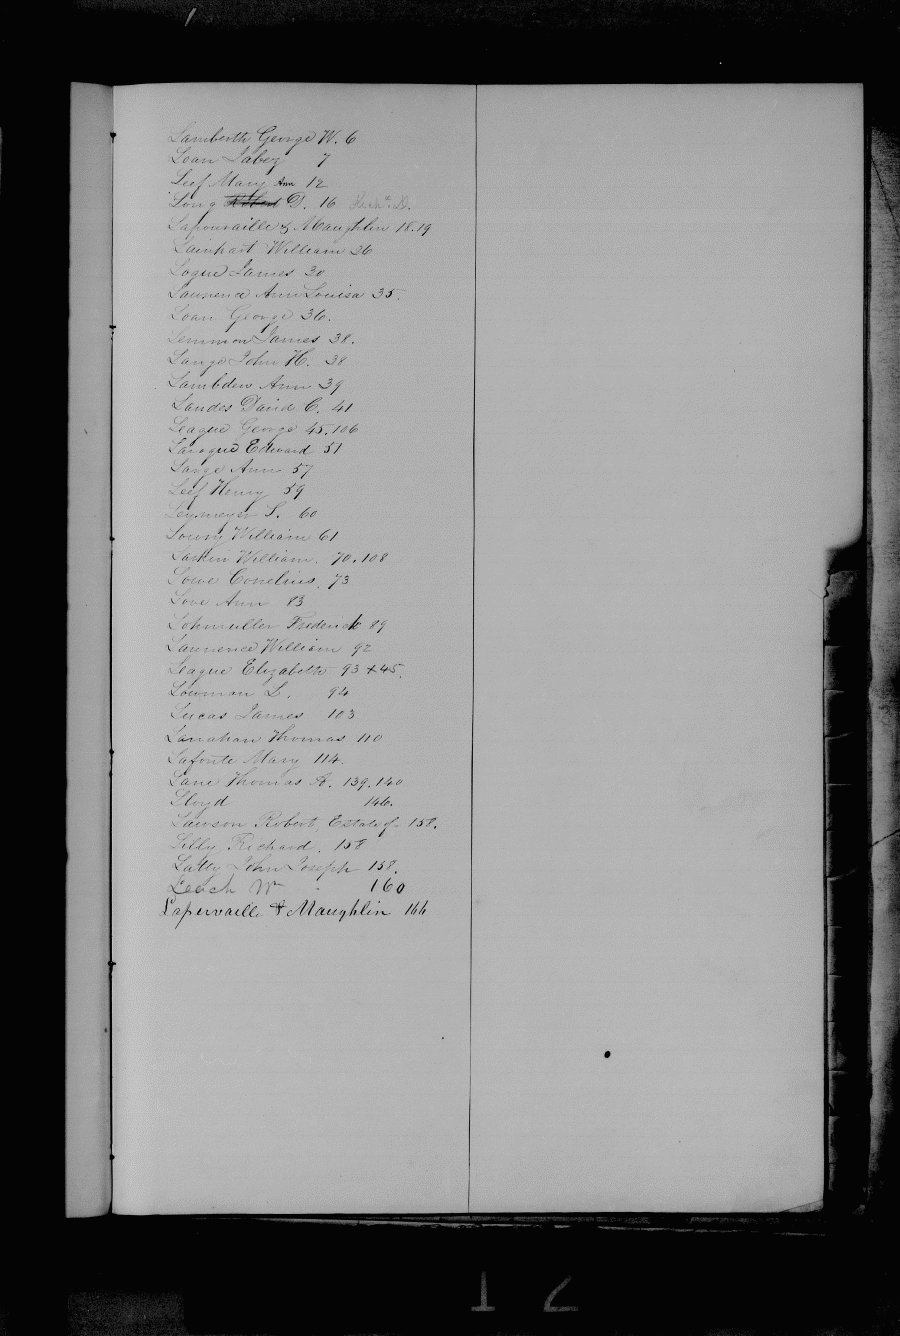 Lamberth George W. 6
Loan Jabez 7
Leef Mary Ann 12
Long Robert D. 16
Lapouraille & Maughlin 18.19
Lainhart William 26
Logue James 30
Laurence Ann Louisa 35.
Loan George 36.
Lemmon James 38.
Lange John H. 38
Lambden Ann 39
Landes David C. 41
League George 45.106
Laroque Edward 51
Large Ann 57
Leef Henry 59
Leymeyer S. 60
Lowry William 61
Larkin William. 70.108
Lowe Cornelius. 73
Love Ann 83
Lohmuller Frederick 89
Laurence William 92
League Elizabeth 93 + 45.
Lowman L. 94
Lucas James 103
Lanahan Thomas 110
Lafonte Mary 114.
Lane Thomas A. 139.140
Lloyd 146.
Lawson Robert, Estate of 158.
Lilly Richard. 158
Latty John Joseph 158.
Leach W 160
Lapervaille & Maughlin 166
12